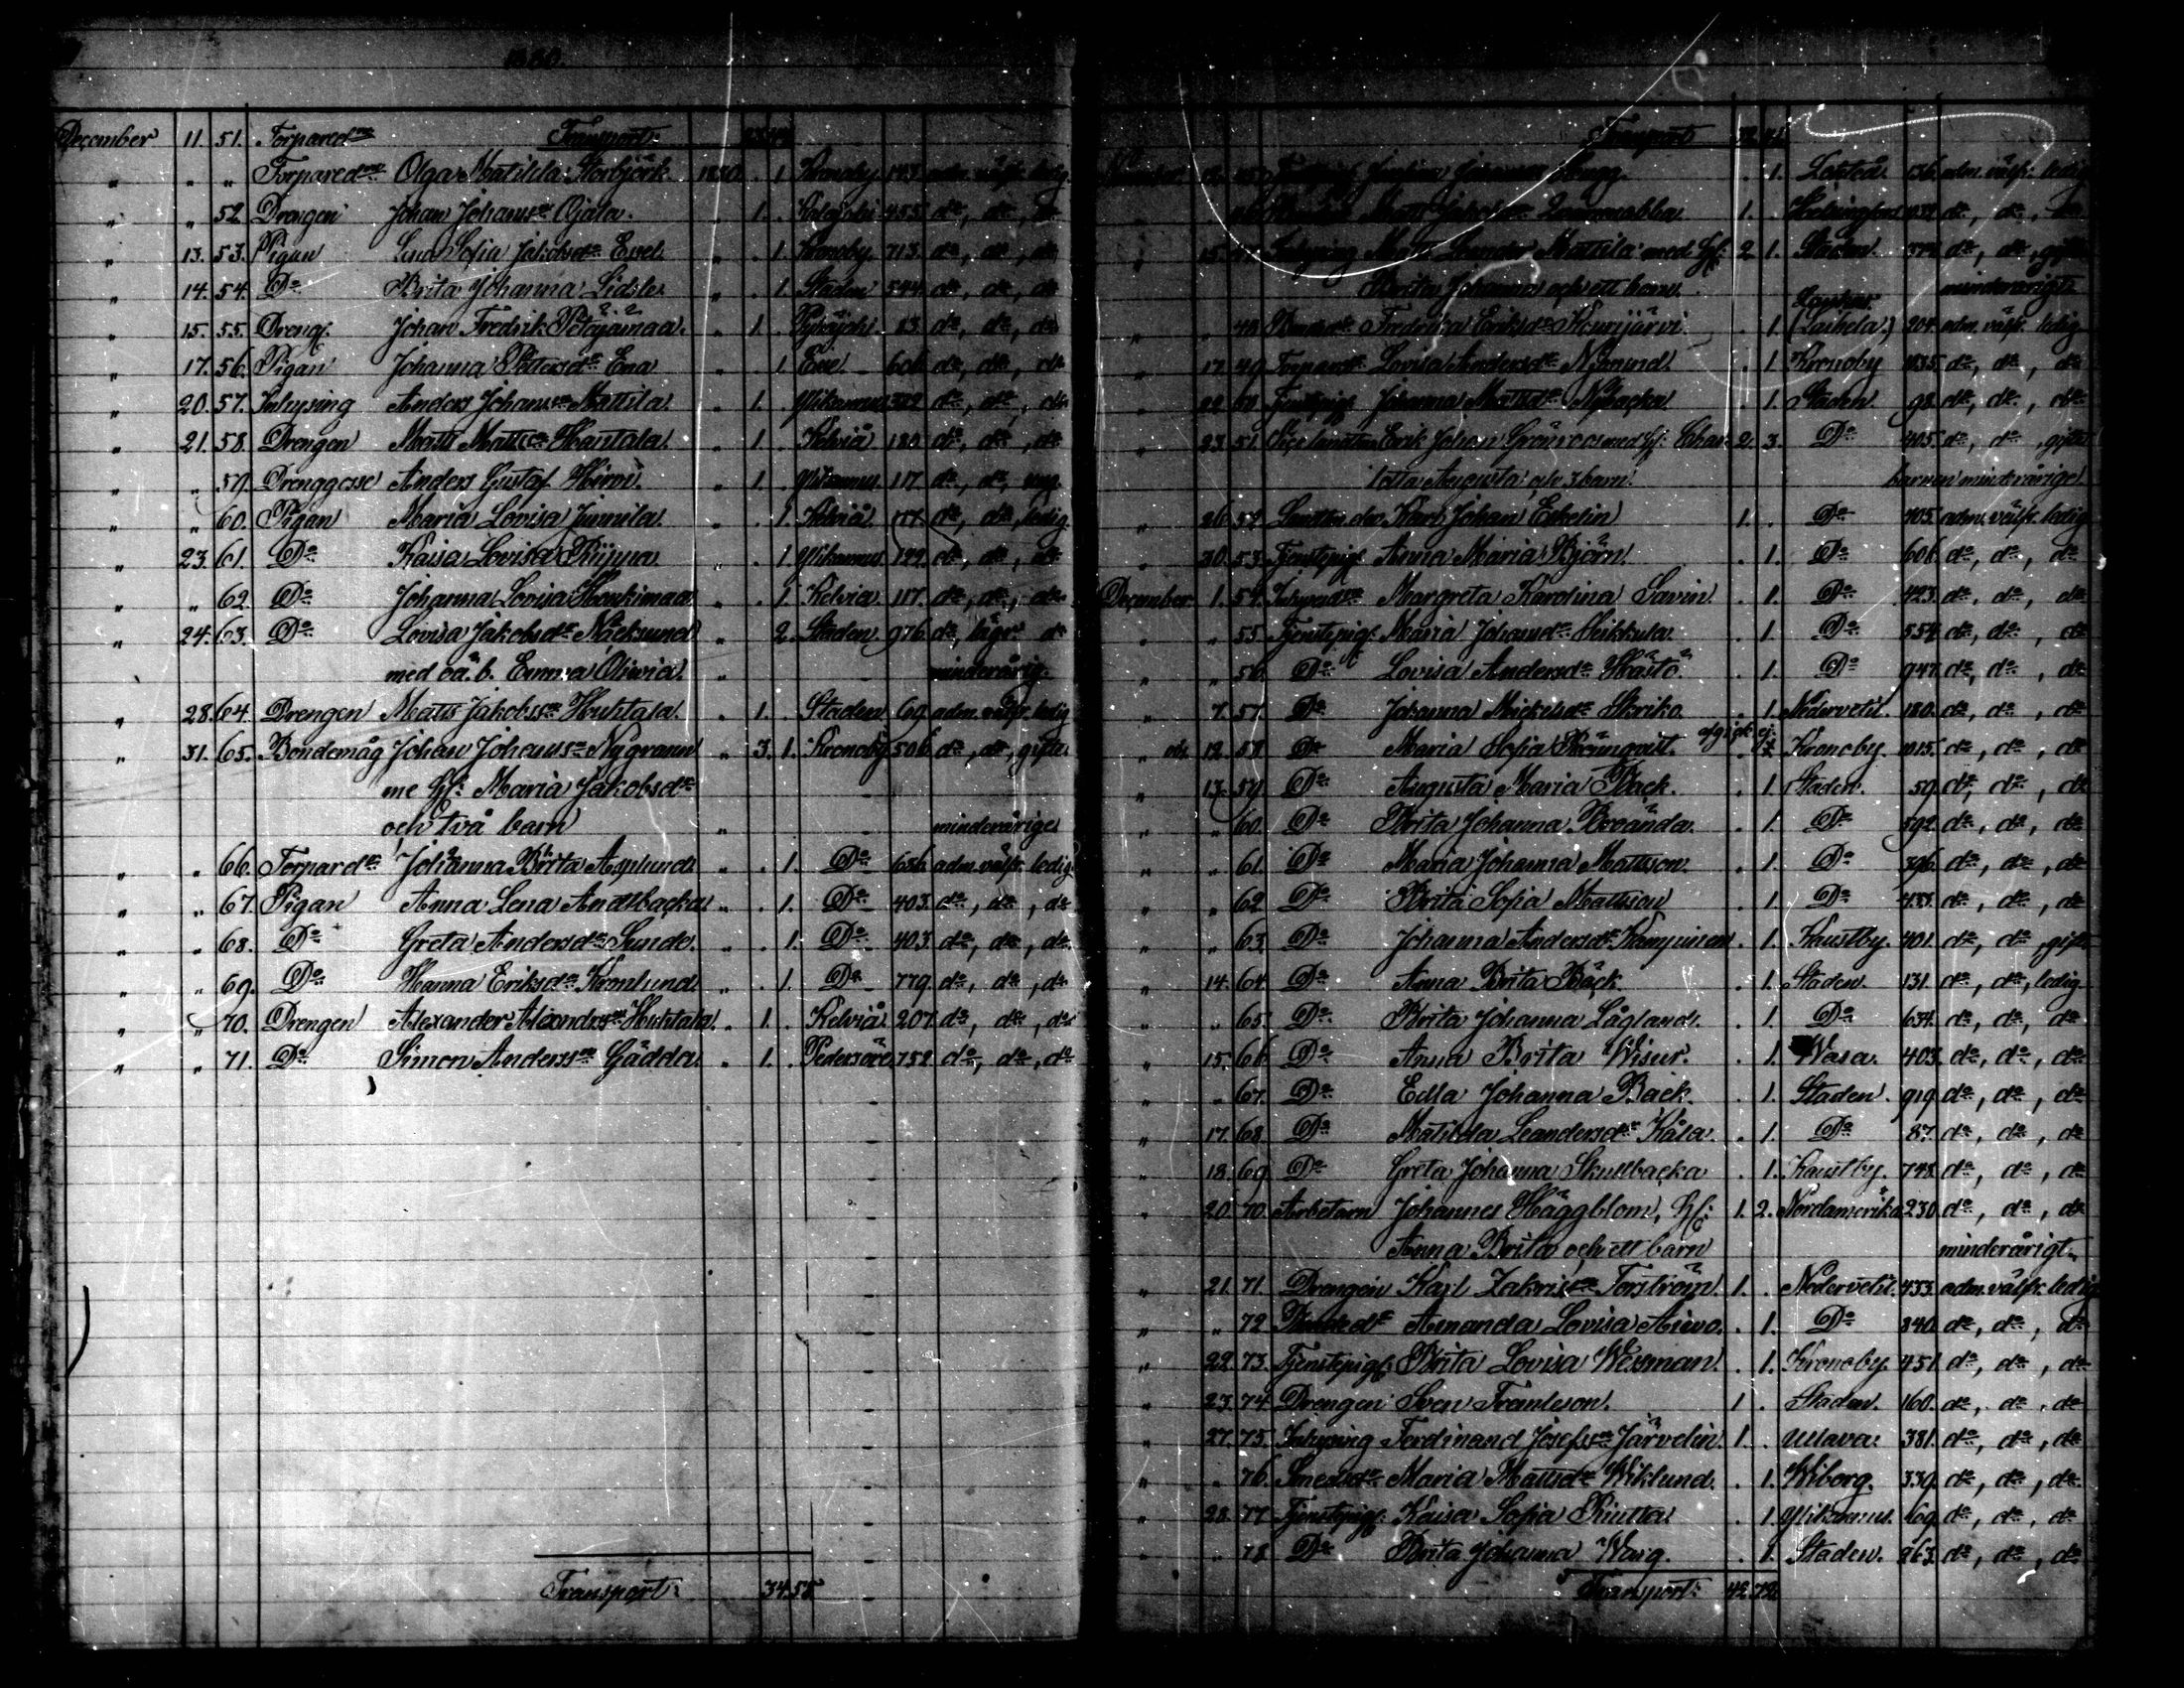 1880.
December 11. 51. Torpareds Transport: 23.
" " " Torpareds Olga Matilda Storbjörk 1880 . 1 Kronoby 143 adm. välfr. ledig.
" " 52 Drengen Johan Johanss Ojala. " 1. . Kalajoki 455 do, do, do
" 13. 53. Pigan Lisa Sofia Jakobsdr Essel. " . 1 Kronoby 713. do, do, do
" 14. 54. Do Brita Johanna Lidsle " . 1. Staden 544 do, do, do
" 15. 55. Dreng Johan Fredrik Petäjämaa. " 1. . Pyhäjoki 13 do, do, do
" 17. 56. Pigan Johanna Pettersdr Ena " . 1 Esse 606 do, do, do
" 20. 57. Inhysing Anders Johanss Mattila. " 1. . Ylikannus 322 do, do, do
" 21. 58. Drengen Matts Mattss Hantala. " 1. . Kelviå 180 do, do, do
" " 59. Drenggosse Anders Gustaf Hirvi. " 1. . Ylikannus 117 do, do, ung
" " 60. Pigan Maria Lovisa Junnila. " . 1. Kelviå 117 do, do, ledig.
" 23. 61. Do Kaisa Lovisa Riippa " . 1 Ylikannus 122 do, do, do
" " 62. Do Johanna Lovisa Honkimaa " . 1. Kelviå 117. do, do, do
" 24. 63. Do Lovisa Jakobsdr Näcksund " 2. Staden 976 do, lägr. do
med oä. b. Emma Oliwia. " minderårig.
" 28. 64. Drengen Matts Jakobss Huhtala. " 1. . Staden 69 adm. välfr. ledig
" 31. 65. Bondemåg Johan Johanss Nygrann " 3. 1. Kronoby 506. do, do, gifte
me Hf: Maria Jakobsdr
och två barn " minderårige
" " 66. Torpardr Johanna Brita Asplund " . 1. Do 656. adm. välfr. ledig.
" " 67. Pigan Anna Lena Andtbacka " . 1. Do 403. do, do, do
" " 68. Do Greta Andersdr Sunde. " . 1. Do 403. do, do, do.
" " 69. Do Hanna Eriksdr Kronlund " . 1. Do 779. do, do, do
" " 70. Drengen Alexander Alexanderss Huhtala. " 1. . Kelviå 207. do, do, do
" " 71. Do Simon Anderss Gädda. " 1. . Pedersöre 752 do, do, do
Transport: 34. 58
Transport
. 1. 136. adm. välfr. ledig
Matts 1. Helsingfors do, do, do
" 15. 47. Inhysing Matts Leander Mattila med Hf: 2 1. Staden. do, do, gifte
Brita Johanna och ett barn. minderårigt
" " 48 Fredrika Eriksdr Kourijärvi . 1. (Laihela) 204. adm. välfr. ledig
" 17. 49 Torpardr Lovisa Andersdr Nymund . 1 Kronoby 1035. do, do, do
" 22 50 Tjenstepig Johanna Mattsdr Nybacka . 1. Staden 98 do, do, do
" 23. 51. Erik Johan Grönroos med Hf: Char 2. 3. Do 405. do, do, gifte
lotta Augusta och 3 barn. barnen minderårige
" 26 52 Karl Johan Eskelin 1. . Do 405 adm. välfr. ledig
" 30. 53. Tjenstepig Anna Maria Björn. . 1. Do 606. do, do, do
December 1. 54. Margreta Karolina Savin. . 1. Do 423. do, do, do
" " 55 Tjenstepig. Maria Johansdr Heikkila . 1. Do 554 do, do, do
" " 56. Do Lovisa Andersdr Hästö. . 1. Do 947. do, do, do
" 7. 57. Do Johanna Mickelsdr Skriko . 1. Nedervetil. 180. do, do, do
" 12. 58 Do Maria Sofia Strömqvist. afgick ej. Kronoby. 1015. do, do, do
" 13. 59. Do Augusta Maria Back. . 1 Staden. 59. do, do, do
" " 60. Do Brita Johanna Broända. . 1. Do 592. do, do, do
" " 61. Do Maria Johanna Mattsson. . 1. Do 396. do, do, do
" " 62 Do Brita Sofia Mattsson . 1. Do do, do, do
" " 63. Do Johanna Andersdr Kamppinen . 1. Kaustby. 401. do, do, gift
" 14. 64. Do Anna Brita Back. . 1. Staden. 131. do, do, ledig
" " 65. Do Brita Johanna Lågland. . 1. Do 634. do, do, do
" 15. 66. Do Anna Brita Wisur. . 1. Wasa. 403. do, do, do
" " 67. Do Edla Johanna Back. . 1. Staden. 919. do, do, do
" 17. 68 Do Matilda Leandersdr Kåla. . 1. Do 87. do, do, do
" 18. 69. Do Greta Johanna Skullbacka . 1. Kaustby. 748. do, do, do
" 20. 70. Arbetaren Johannes Häggblom, Hf: 1. 2. Nordamerika 230. do, do, do
Anna Brita och ett barn minderårigt
" 21. 71. Drengen Karl Zakriss Forström. 1. . Nedervetil. 433. adm. välfr. ledig
" " 72 Bondedr Amanda Lovisa Aisvo. . 1. Do 340. do, do, do
" 22. 73. Tjenstepig. Brita Lovisa Wessman. . 1. Kronoby 451. do, do, do
" 23. 74. Drengen Sven Framleson. 1 . Staden. 160. do, do, do
" 27. 75. Inhysing Ferdinand Josefss Järvelin. 1. . Ullava 381. do, do, do
" " 76. Smedsdr Maria Mattsdr Wiklund. . 1. Wiborg. 339. do, do, do
" 28. 77. Tjenstepig. Kaisa Sofia Riutta . 1. Ylikannus. 169. do, do, do
" " 78 Do Brita Johanna Warg. . 1. Staden. 263. do, do, do
Transport: 42. 72.